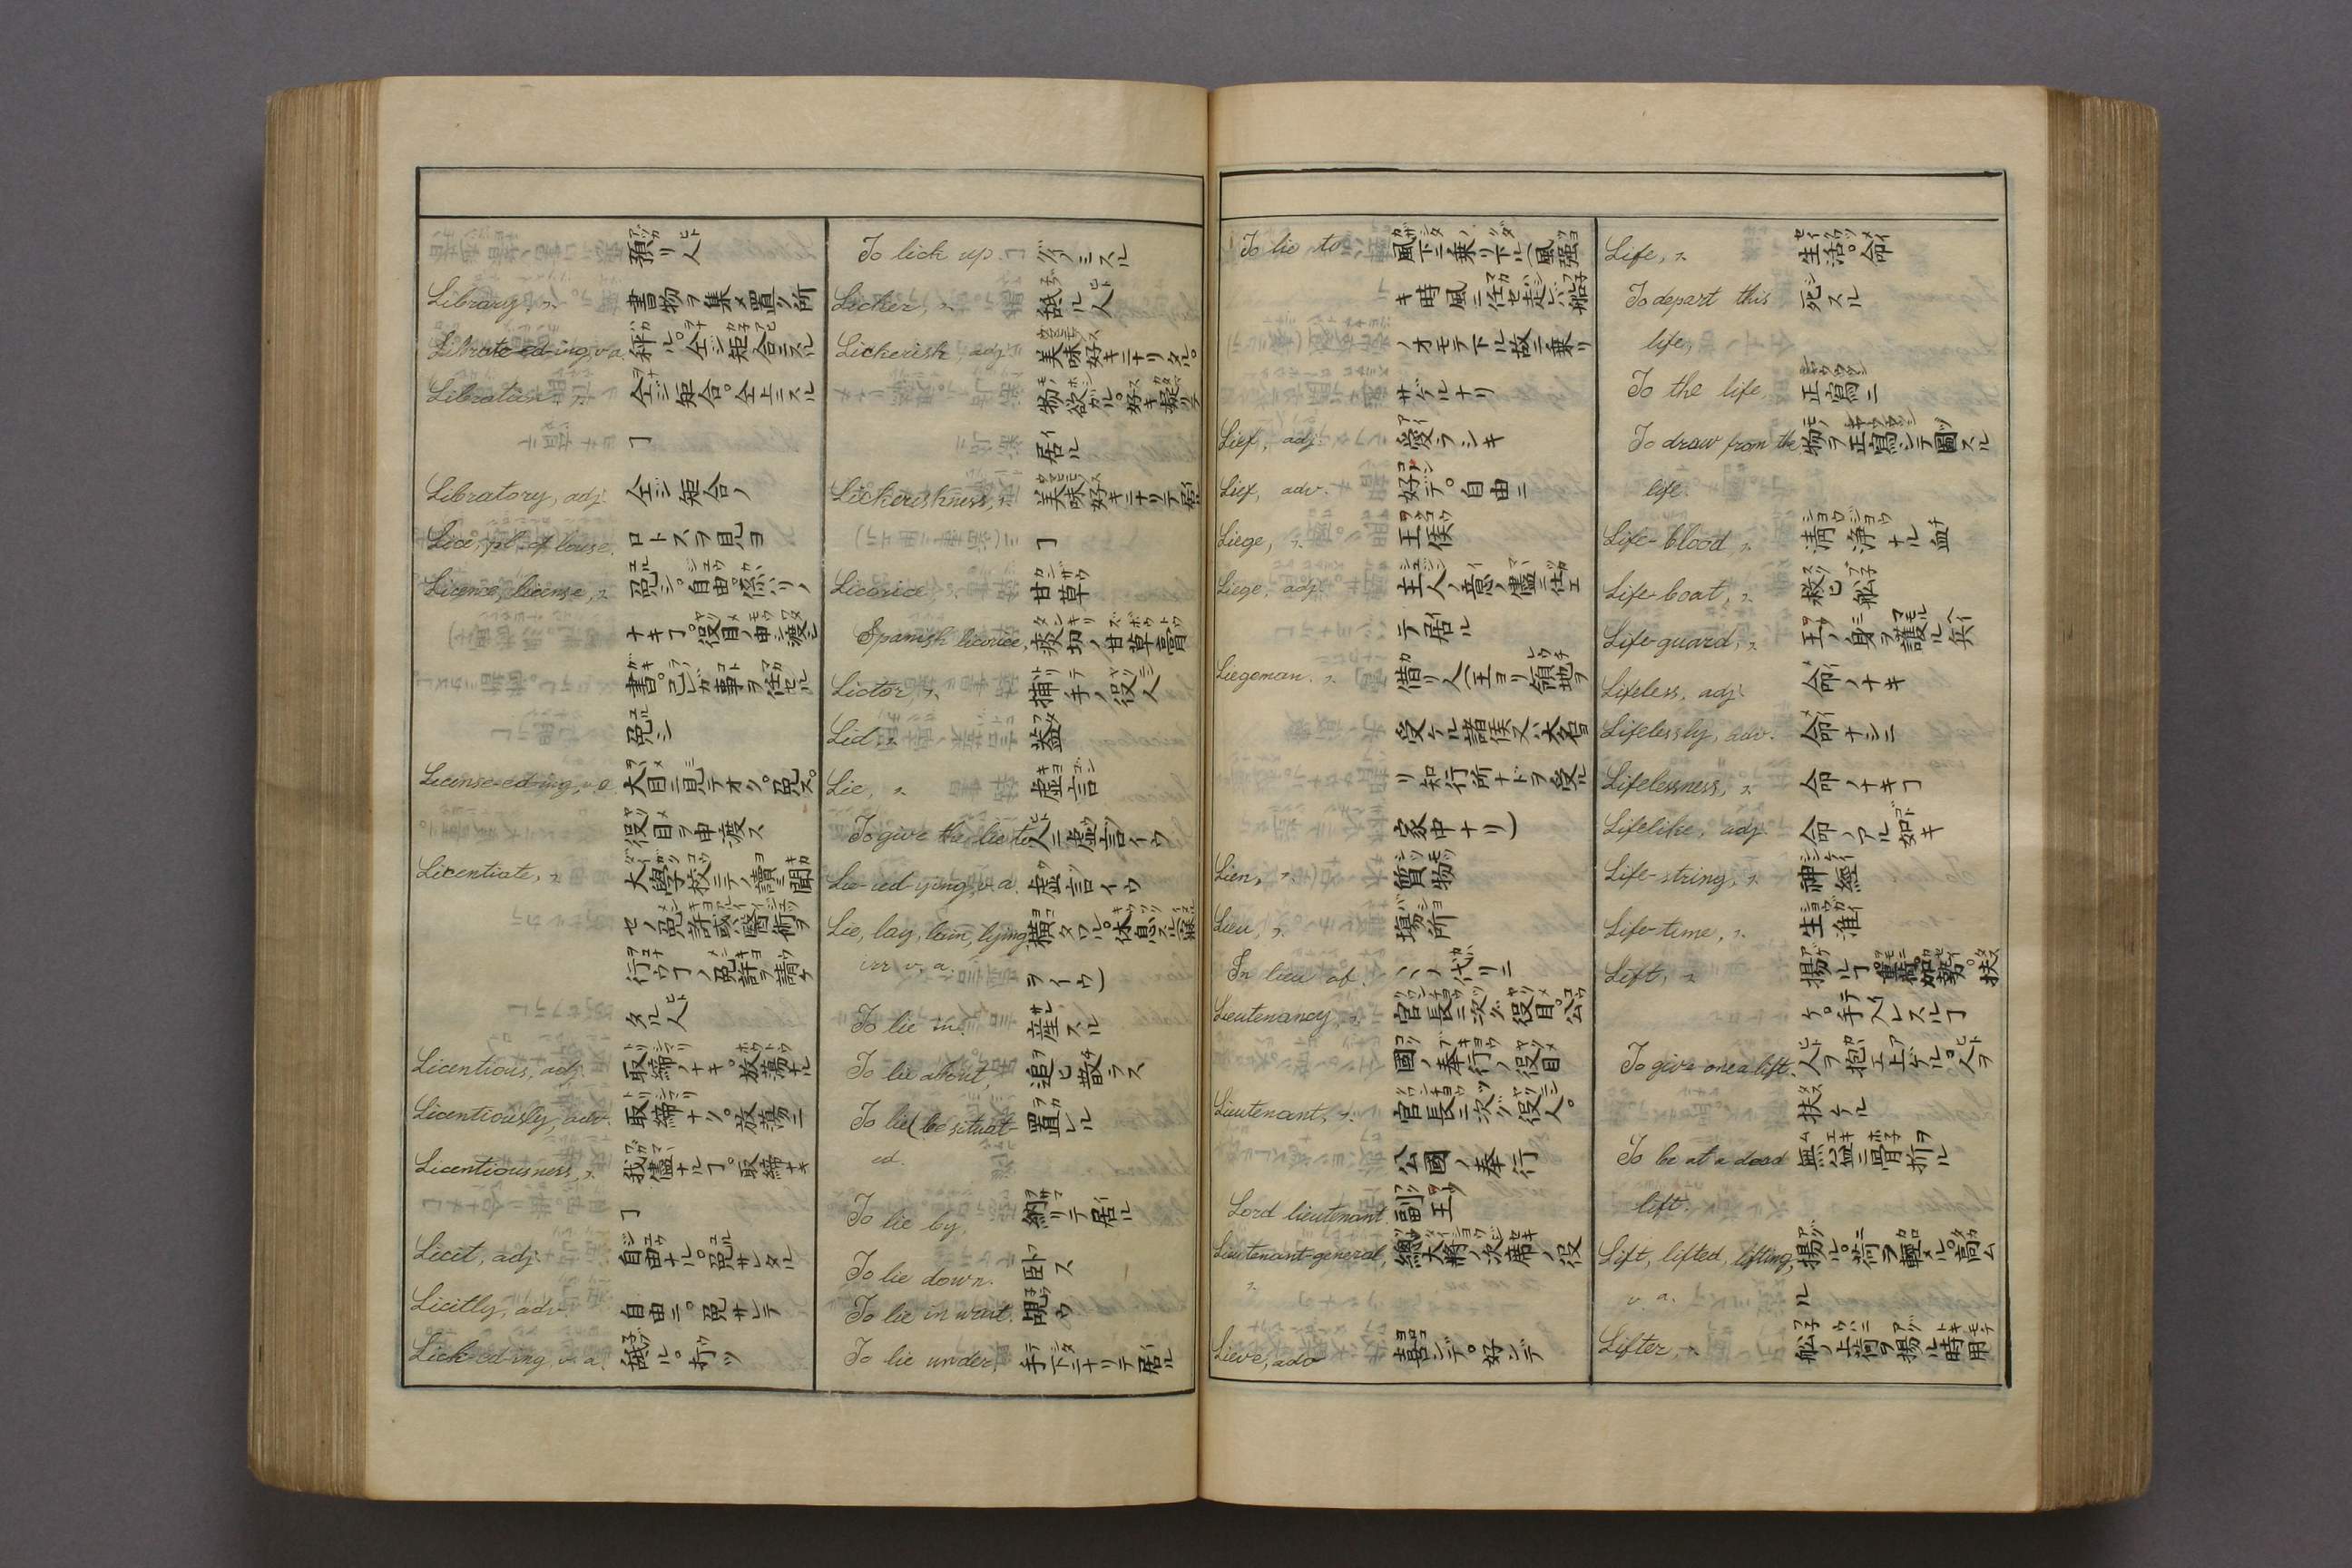 預リ人
Library, n. 書物ヲ集メ置ク所
Librate-ed-ing, v.a. 秤ル。仝シ矩合ニスル
Libration, n. 仝シ矩合。仝上ニスル
ヿ
Libratory, adj. 仝シ矩合ノ
Lice, pl. of louse. ロトスヲ見ヨ
Licence, license, n. 免シ。自由。係リノ
ナキヿ。役目ノ申シ渡シ
書。己ガ事ヲ任セル
免シ
License-ed-ing, v.a. 大目ニ見テオク。免ス。
役目ヲ申渡ス
Licentiate, n. 大學校ニテノ讀ミ聞
セノ免許或ハ醫術ヲ
行ウヿノ免許ヲ請ケ
タル人
Licentious, adj. 取締ノナキ。放蕩ナル
Licentiously, adv. 取締ナク。放蕩ニ
Licentiousness, n. 我儘ナルヿ。取締ナキ
ヿ
Licet, adj. 自由ナル。免サレタル
Licitly, adv. 自由ニ。免サレテ
Lick-ed-ing, v.a. 舐ル。打ツ
To lick up.
Licker, n. 舐ル人
Lickerish, adj. 美味好キニナリタル。
物欲ガル。好キ凝リテ
居ル
Lickerishness, n. 美味好キニナリテ居ル
ヿ
Licorice, n. 甘草
Spanish licorice, 痰切ノ甘草膏
Lictor, n. 捕手ノ役人
Lid, n. 蓋
Lie, n. 虚言
To give the lie to, 人ニ虚言イウ
Lie-ied-ying, v.a. 虚言イウ
Lie, lay, lain, lying, 横タワル。休息スル
irr v. a. ヲイウ)
To lie in. 産スル
To lie about, 追ヒ散ラス
To lie (be situat- 置レル
ed.
To lie by. 網リテ居ル
To lie down. 臥ス
To lie in wait. 覗ウ
To lie under, 手下ニナリテ居ル
To lie to, 風下ニ乗リ下ル(風強
キ時風ニ任セ走レバ船
ノオモテ下ル故ニ乗リ
サゲルナリ
Lief, adj. 愛ラシキ
Lief, adv. 好ンデ。自由ニ
Liege, n. 王侯
Liege, adj. 主人ノ意ノ儘ニ仕エ
テ居ル
Liegeman. n. 借リ人(王ヨリ領地ヲ
受ケル諸侯又ハ大名ヨ
リ知行所ナドヲ受ル
家中ナリ)
Lien, n. 質物
Lieu, n. 場所
In lieu of. ヽヽノ代リニ
Lieutenancy, n. 官長ニ次グ役目。公
國ノ奉行ノ役目
Lieutenant, n. 官長ニ次グ役人。
公國ノ奉行
Lord lieutenant. 副王
Lieutenant-general, 總大將ノ次席ノ役
n.
Lieve, adv 喜ンデ。好ンデ
Life, n. 生活。命
To depart this 死スル
life,
To the life, 正寫ニ
To draw from the 物ヲ正寫シテ圖スル
life.
Life-blood, n. 清浄ナル血
Life-boat, n. 救ヒ舩
Life-guard, n. 王ノ身ヲ護ル兵
Lifeless, adj. 命ノナキ
Lifelessly, adv. 命ナシニ
Lifelessness, n. 命ノナキヿ
Lifelike, adj. 命ノアル如キ
Life-string, n. 神經
Life-time, n. 生涯
Lift, n. 揚ルヿ。重荷。加勢。扶
ケ。手入レスルヿ
To give one a lift. 人ヲ抱エ上ゲル。人ヲ
扶ケル
To be at a dead 無益ニ骨折ル
lift.
Lift, lifted, lifting, 揚グル。荷ヲ輕メル。高ム
v. a. ル
Lifter, n. 舩ノ上荷ヲ揚ル時用